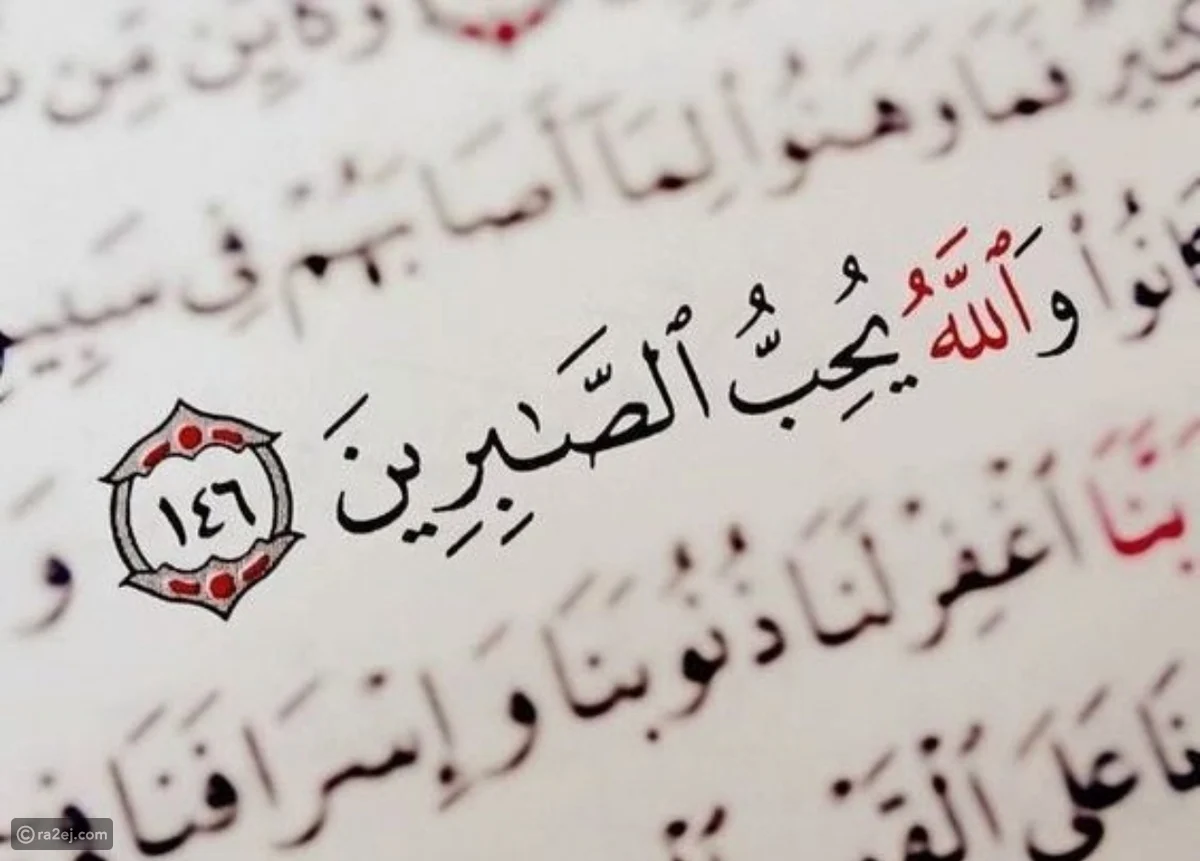 وَكَأَيِّن مِّن
كَثِيرٌ فَمَا وَهَنُوا۟ لِمَآ أَصَابَهُمْ فِى سَبِيلِ
كَانُوا۟ وَٱللَّهُ يُحِبُّ ٱلصَّـٰبِرِينَ ١٤٦ وَ
رَبَّنَا ٱغْفِرْ لَنَا ذُنُوبَنَا وَإِسْرَافَنَا فِى
نَا عَلَى ٱلْقَوْ
© ra2ej.com